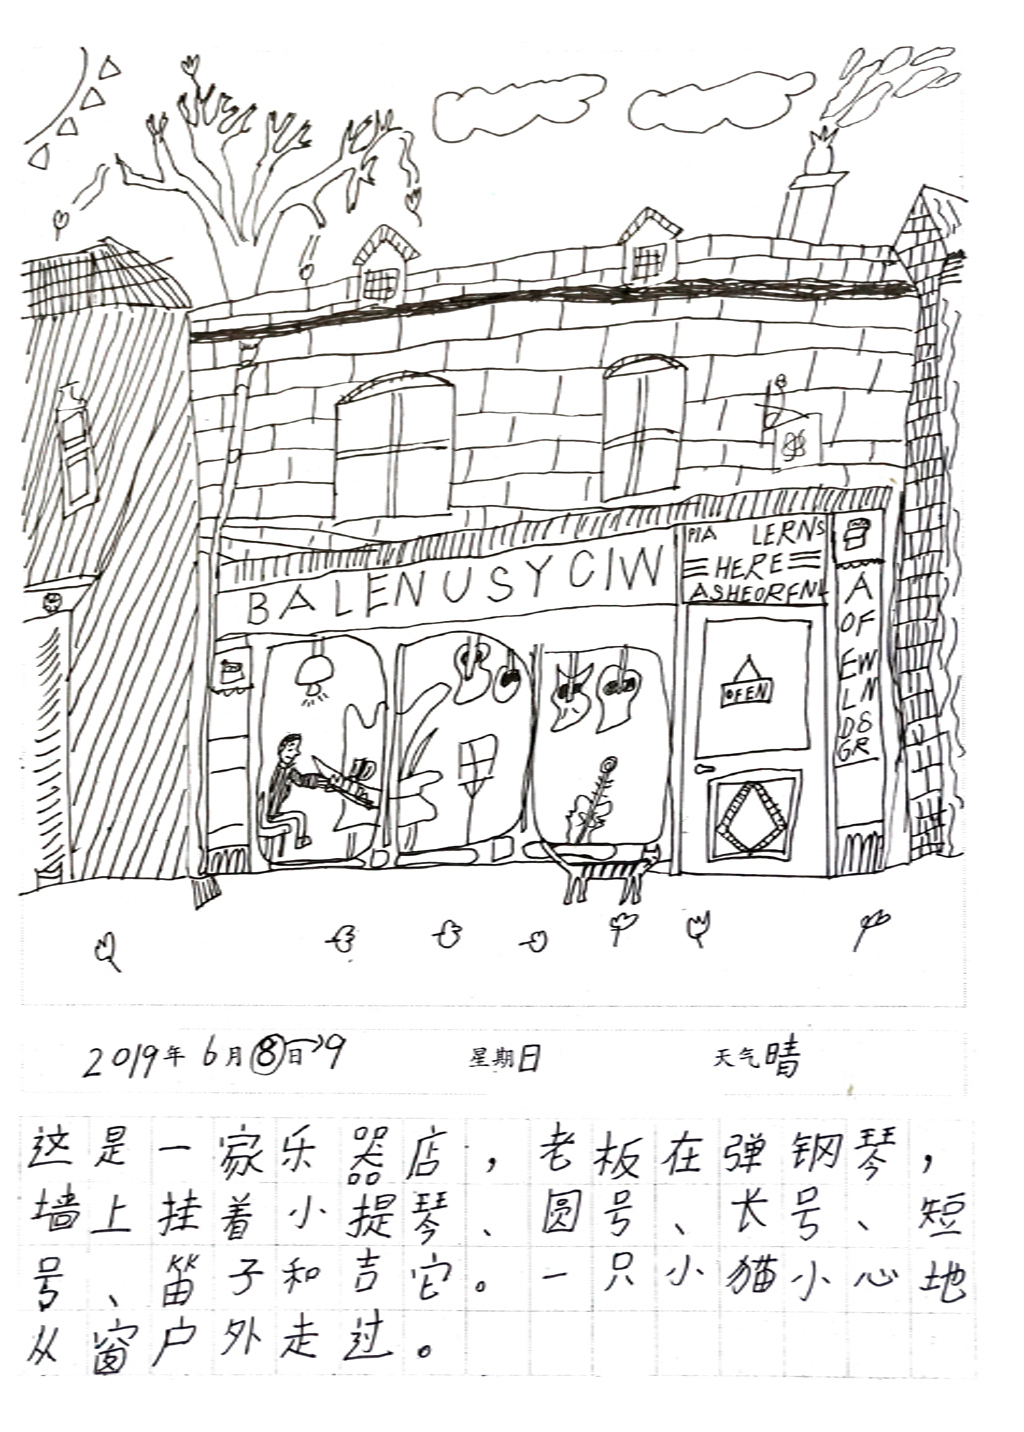 PIA LERNS
HERE
ASHEORFNL
BALENUSYCIW
A
OF
EW
LN
D8
GR
OPEN
2019年 6月8日→9 星期日 天气晴
这是一家乐器店，老板在弹钢琴，
墙上挂着小提琴、圆号、长号、短
号、笛子和吉它。一只小猫小心地
从窗户外走过。